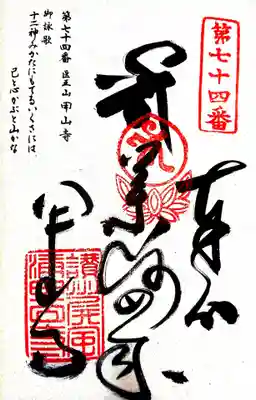 第七十四番
奉納
薬師如来
甲山寺
第七十四番 医王山 甲山寺
御詠歌
十二神みかたにもてるいくさには
己と心かぶと山かな